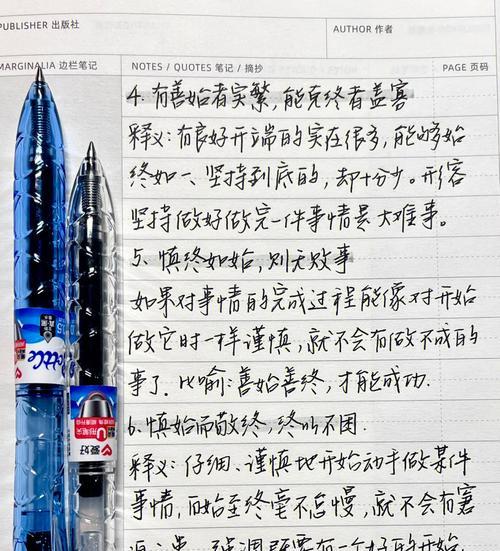 PUBLISHER 出版社
AUTHOR 作者
MARGINALIA 边栏笔记
NOTES / QUOTES 笔记 / 摘抄
PAGE 页码
4. 有善始者实繁,能克终者盖寡
释义:有良好开端的实在很多,能够始
终如一、坚持到底的,却十分少。形容
坚持做好做完一件事情是大难事。
5. 慎终如始,则无败事
如果对事情的完成过程能像对开始
做它时一样谨慎,就不会有做不成的
事了.比喻:善始善终,才能成功.
6. 慎始而敬终,终以不困.
释义:仔细、谨慎地开始动手做某件
事情,而始至终毫不怠慢,就不会有窘
要有一个好的开始
ottle
爱好